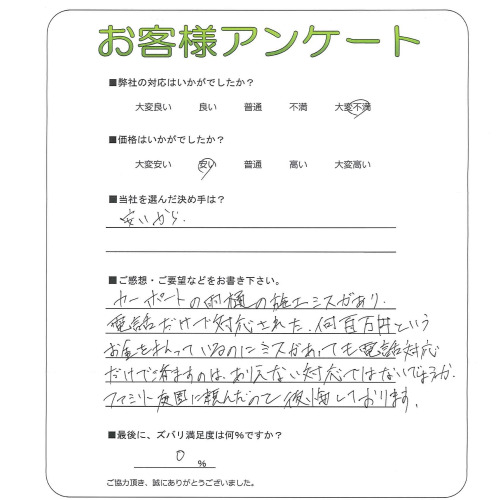 お客様アンケート
■弊社の対応はいかがでしたか?
大変良い 良い 普通 不満 大変不満
■価格はいかがでしたか?
大変安い 安い 普通 高い 大変高い
■当社を選んだ決め手は?
安いから.
■ご感想・ご要望などをお書き下さい。
カーポートの雨樋の施工ミスがあり.
電話だけで対応された.何百万円という
お金を払っているのにミスがあっても電話対応
だけで済ますのは、ありえない対応ではないでしょうか.
ファミリー庭園に頼んだので後悔しております。
■最後に、ズバリ満足度は何%ですか?
0 %
ご協力頂き、誠にありがとうございました。